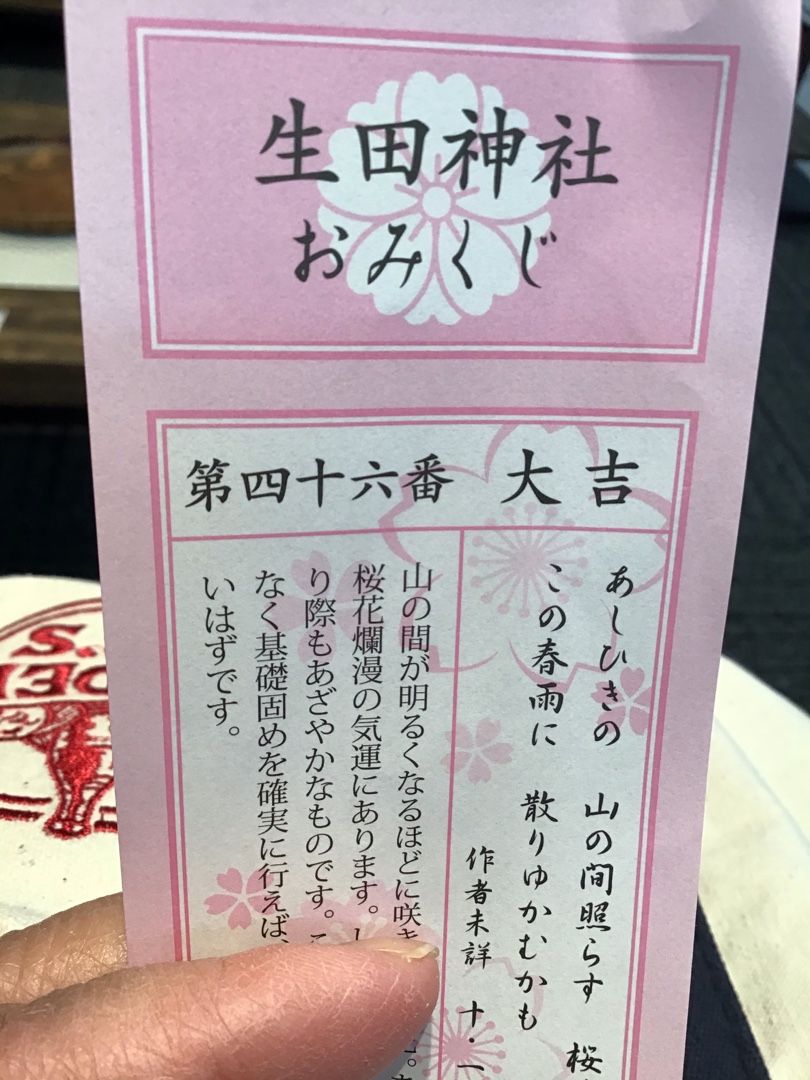 生田神社
おみくじ
第四十六番 大吉
あしひきの 山の間照らす 桜
この春雨に 散りゆかむかも
作者未詳 十・一
山の間が明るくなるほどに咲き
桜花爛漫の気運にあります。
り際もあざやかなものです。
なく基礎固めを確実に行えば、
いはずです。
S.